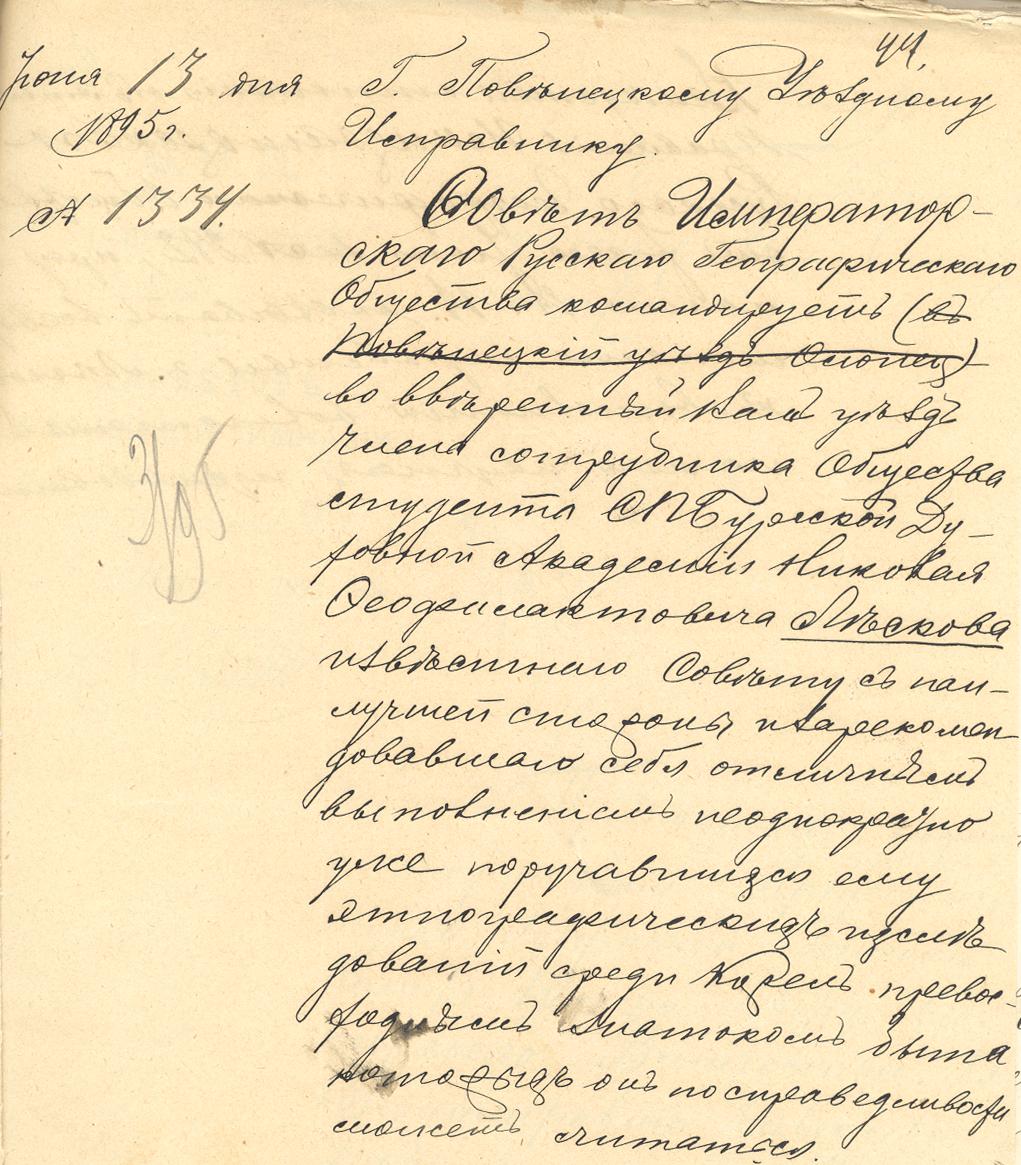 44.
Іюня 13 дня
1895 г.
№ 1334.
Г. Повѣнецкому Уѣздному
Исправнику.
Совѣтъ Император-
скаго Русскаго Географическаго
Общества командируетъ (въ
Повѣнецкій уѣздъ Олонец)
во ввѣренный Вамъ уѣздъ
члена сотрудника Общества
студента СПБургской Ду-
ховной Академіи Николая
Ѳеофилактовича Лѣскова
извѣстнаго Совѣту съ наи-
лучшей стороны и зарекомен
довавшаго себя отличнымъ
выполненіемъ неоднократно
уже поручавшихся ему
этнографическихъ изслѣ
дованій среди Карелъ превос-
ходнымъ знатокомъ быта,
которыхъ онъ по справедливости
можетъ считаться.